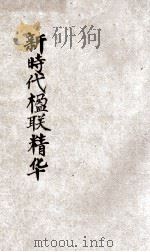 新時代楹联精华
mtoou.info